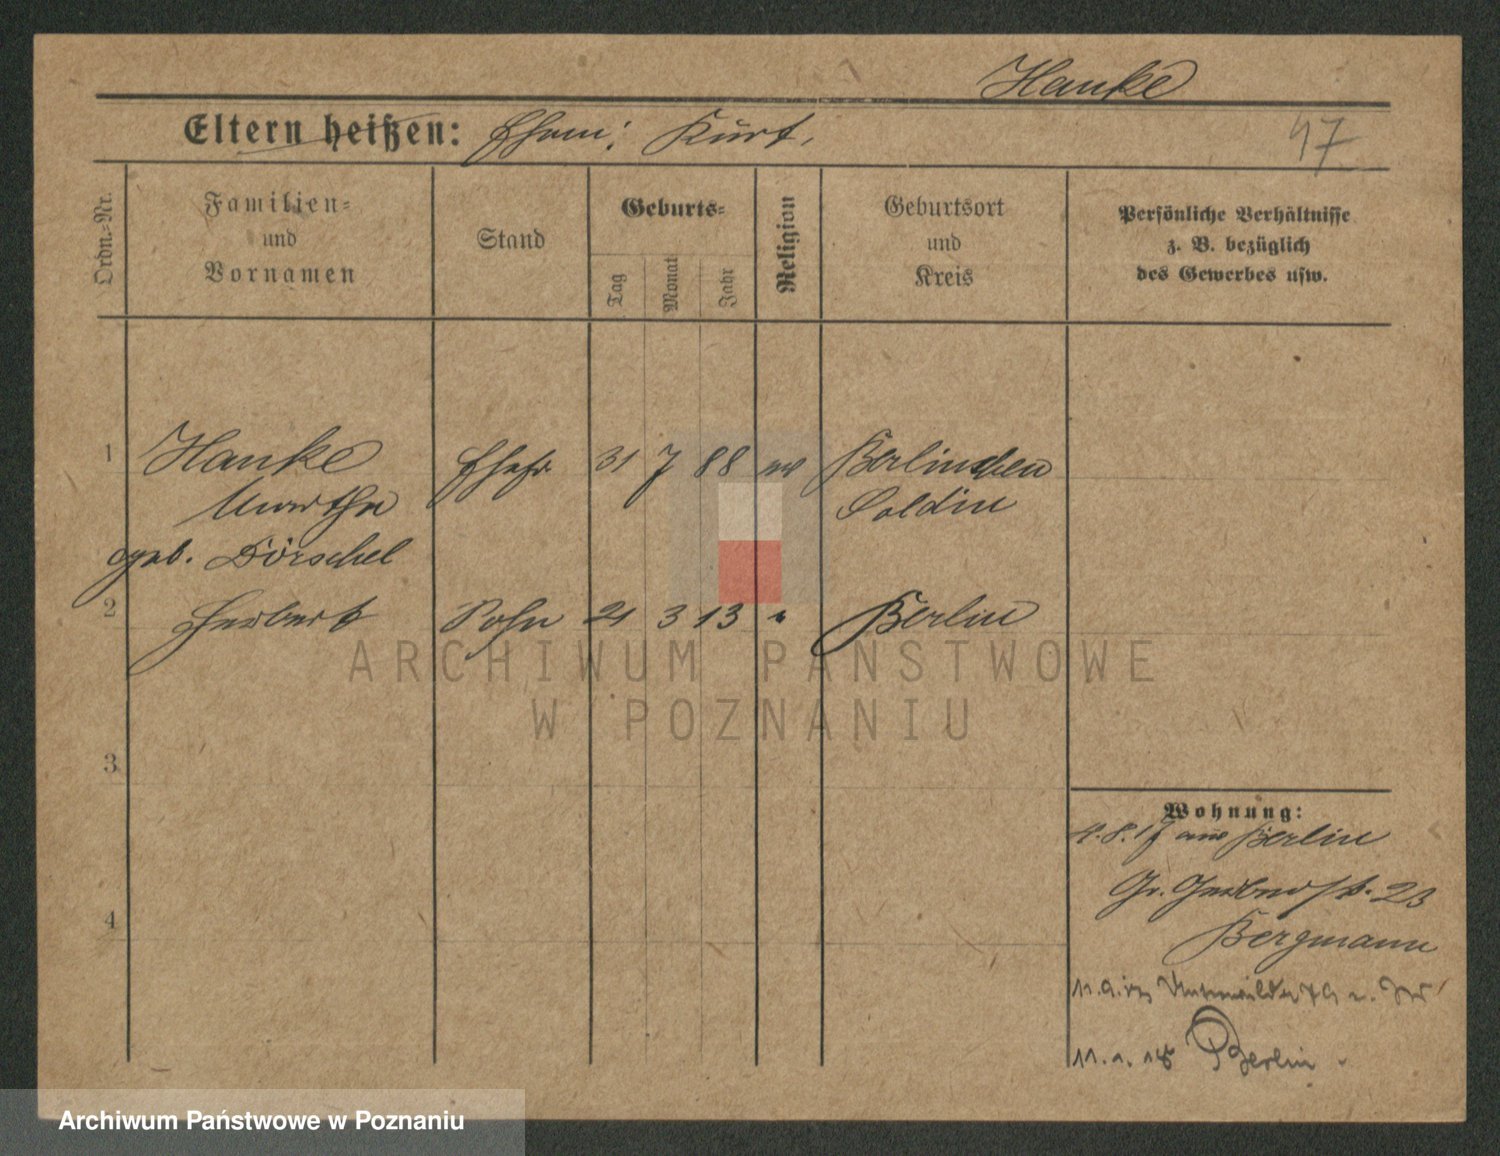 Hanke
Eltern heißen: Ehem: Kurt.
47
Ordn.-Nr.
Familien-
und
Vornamen
Stand
Geburts-
Tag
Monat
Jahr
Religion
Geburtsort
und
Kreis
Persönliche Verhältnisse
z. B. bezüglich
des Gewerbes usw.
1 Hanke Ehefr 31 7 88 ev Berlinchen
Martha Soldin
geb. Dörschel
2 Herbert Sohn 21 3 13 " Berlin
ARCHIWUM PAŃSTWOWE
W POZNANIU
3
4
Wohnung:
4.8.17 aus Berlin
Gr. Gerberstr. 23
Bergmann
11.9.17
11.1.18 Berlin
Archiwum Państwowe w Poznaniu